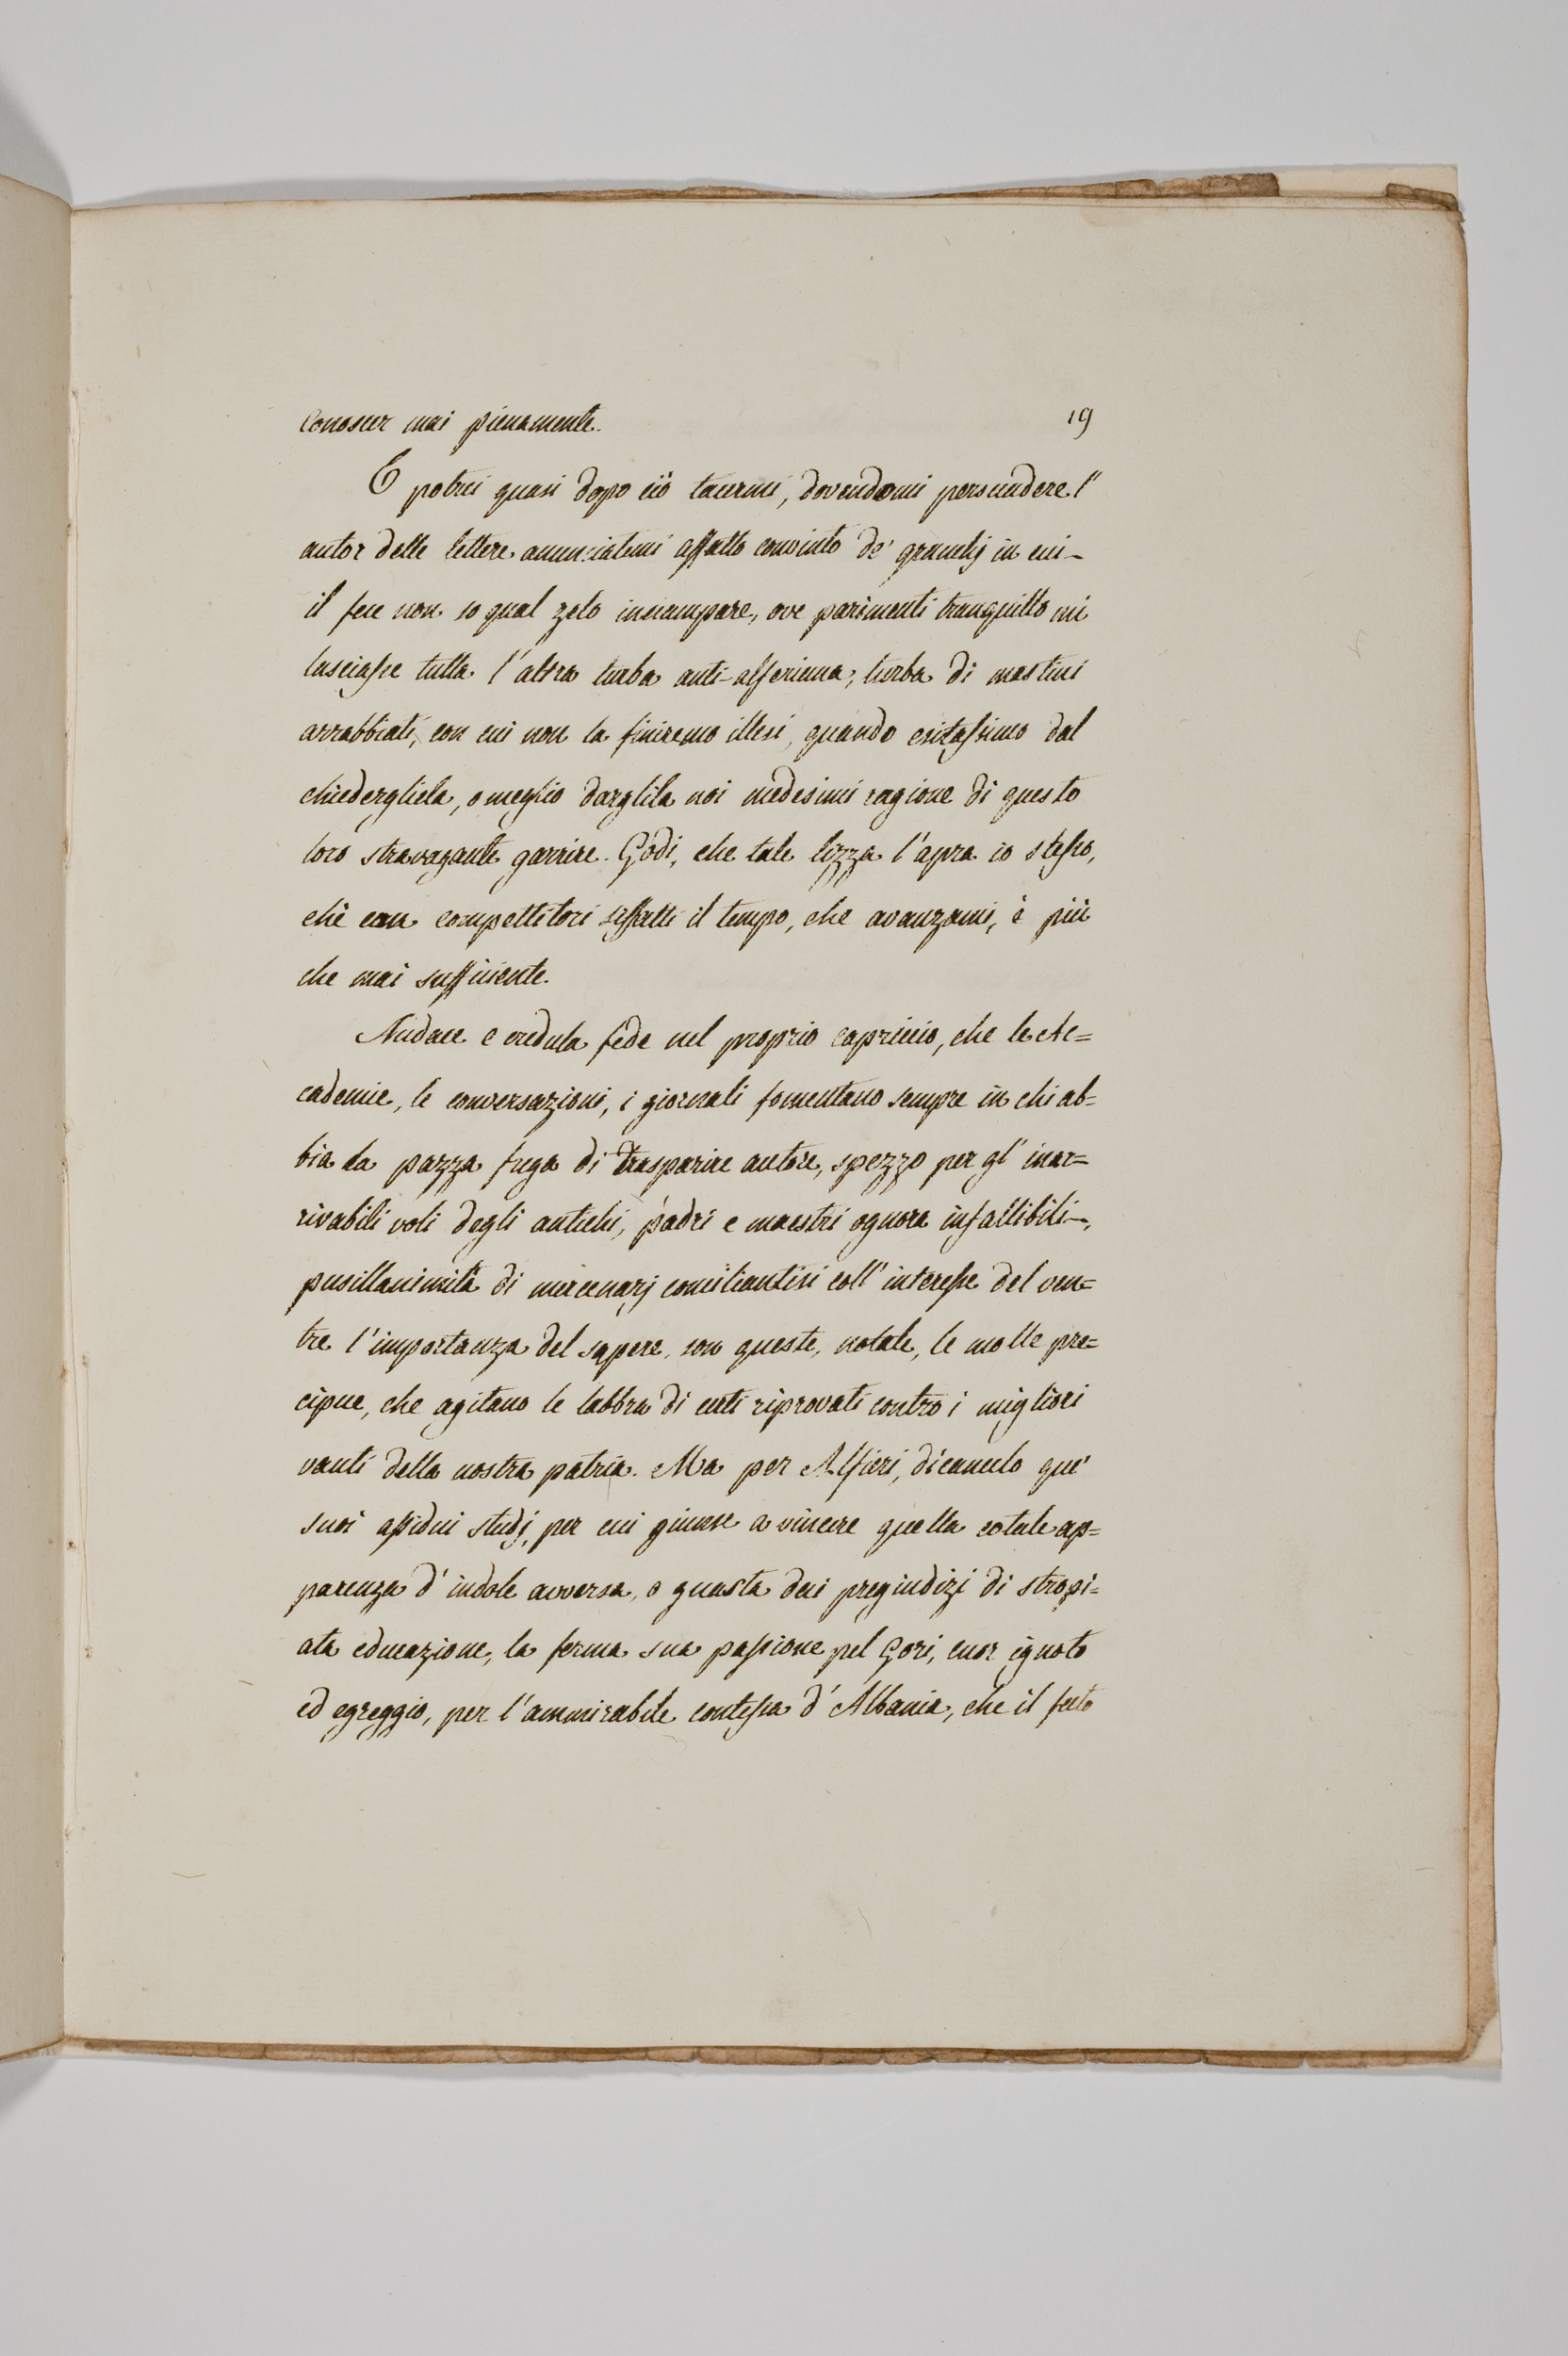 conoscer mai pienamente. 19
E potrei quasi dopo ciò tacermi, dovendomi persuadere l'
autor delle lettere annunciatemi affatto convinto de' granchj in cui
il fece non so qual zelo inciampare, ove parimenti tranquillo mi
lasciasse tutta l'altra turba anti-alferiana; turba di mastini
arrabbiati, con cui non la finiremo illesi, quando esitassimo dal
chiedergliela, o meglio dargliela noi medesimi ragione di questo
loro stravagante garrire. Godi, che tale lizza l'apra io stesso,
chè con compettitori siffatti il tempo, che avanzami, è più
che mai sufficiente.
Audace e credula fede nel proprio capriccio, che le Ac=
cademie, le conversazioni, i giornali fomentano sempre in chi ab=
bia la pazza frega di trasparire autore, sprezzo per gl' inar=
rivabili voli degli antichi, padri e maestri ognora infallibili,
pusillanimità di mercenarj conciliantisi coll' interesse del ven=
tre l'importanza del sapere, son queste, notale, le molle pre=
cipue, che agitano le labbra di enti riprovati contro i migliori
vanti della nostra patria. Ma per Alfieri, dicancelo que'
suoi assidui studj, per cui giunse a vincere quella cotale ap=
parenza d' indole avversa, o guasta dai pregiudizi di stropi=
ata educazione, la ferma sua passione pel Gori, cuor ignoto
ed egreggio, per l'ammirabile contessa d' Albania, che il feo